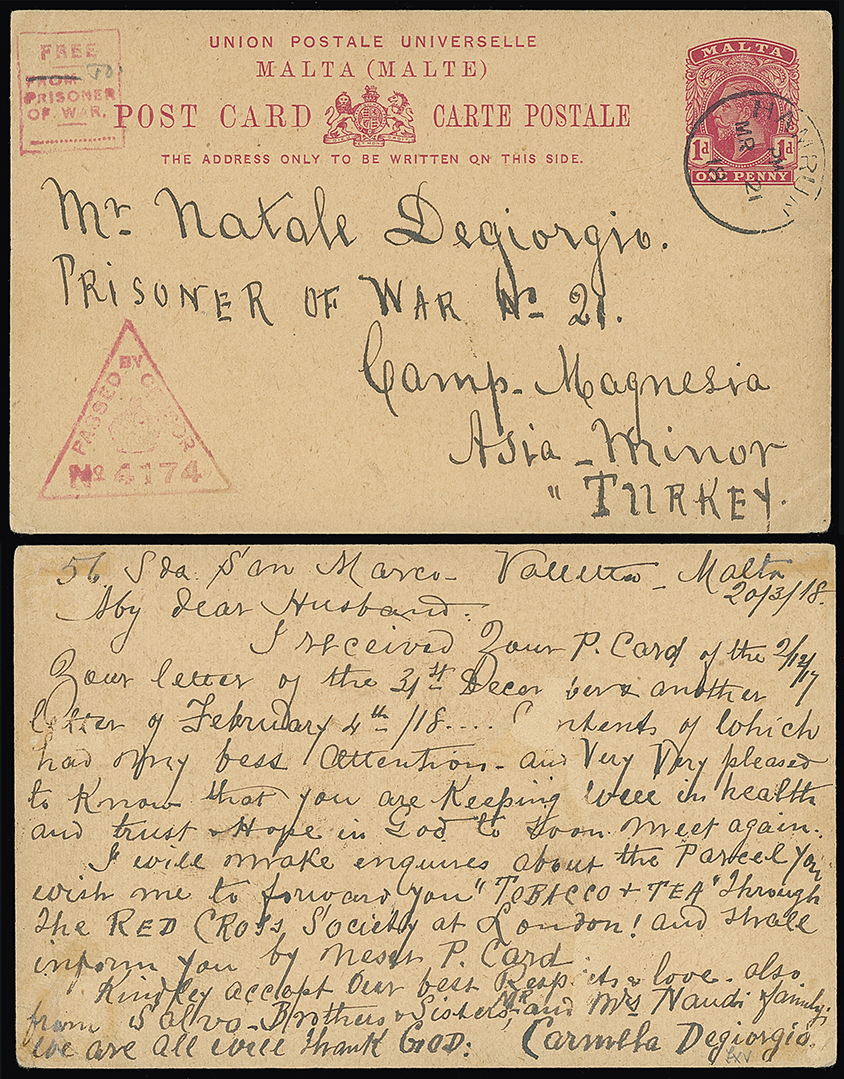 FREE
FROM TO
PRISONER
OF WAR.
UNION POSTALE UNIVERSELLE
MALTA (MALTE)
POST CARD CARTE POSTALE
THE ADDRESS ONLY TO BE WRITTEN ON THIS SIDE.
MALTA
1d 1d
ONE PENNY
HAMRUN
PM
MR 21
18
Mr Natale Degiorgio.
PRISONER OF WAR No 21.
Camp-Magnesia
Asia-Minor
" TURKEY.
PASSED BY CENSOR
No 4174
56 Sda San Marco- Valletta-Malta
20/3/18.
My dear Husband.
I received Your P. Card of the 2/12/17
Your letter of the 31st Decem ber & another
letter of February 4th /18.... C ntents of which
had my bess attention- and Very Very pleased
to Know that you are Keeping well in health
and trust & Hope in God to soon meet again.
I will make enquires about the Parcel You
wish me to forward you "TOBACCO + TEA" Through
The RED CROSS Society at London! and shall
inform you by next P. Card
Kindley accept Our best Respects & love. also
from Salvo-Brothers & Sisters, MR and Mrs Naudi & family;
We are all well thank GOD: Carmella Degiorgio.